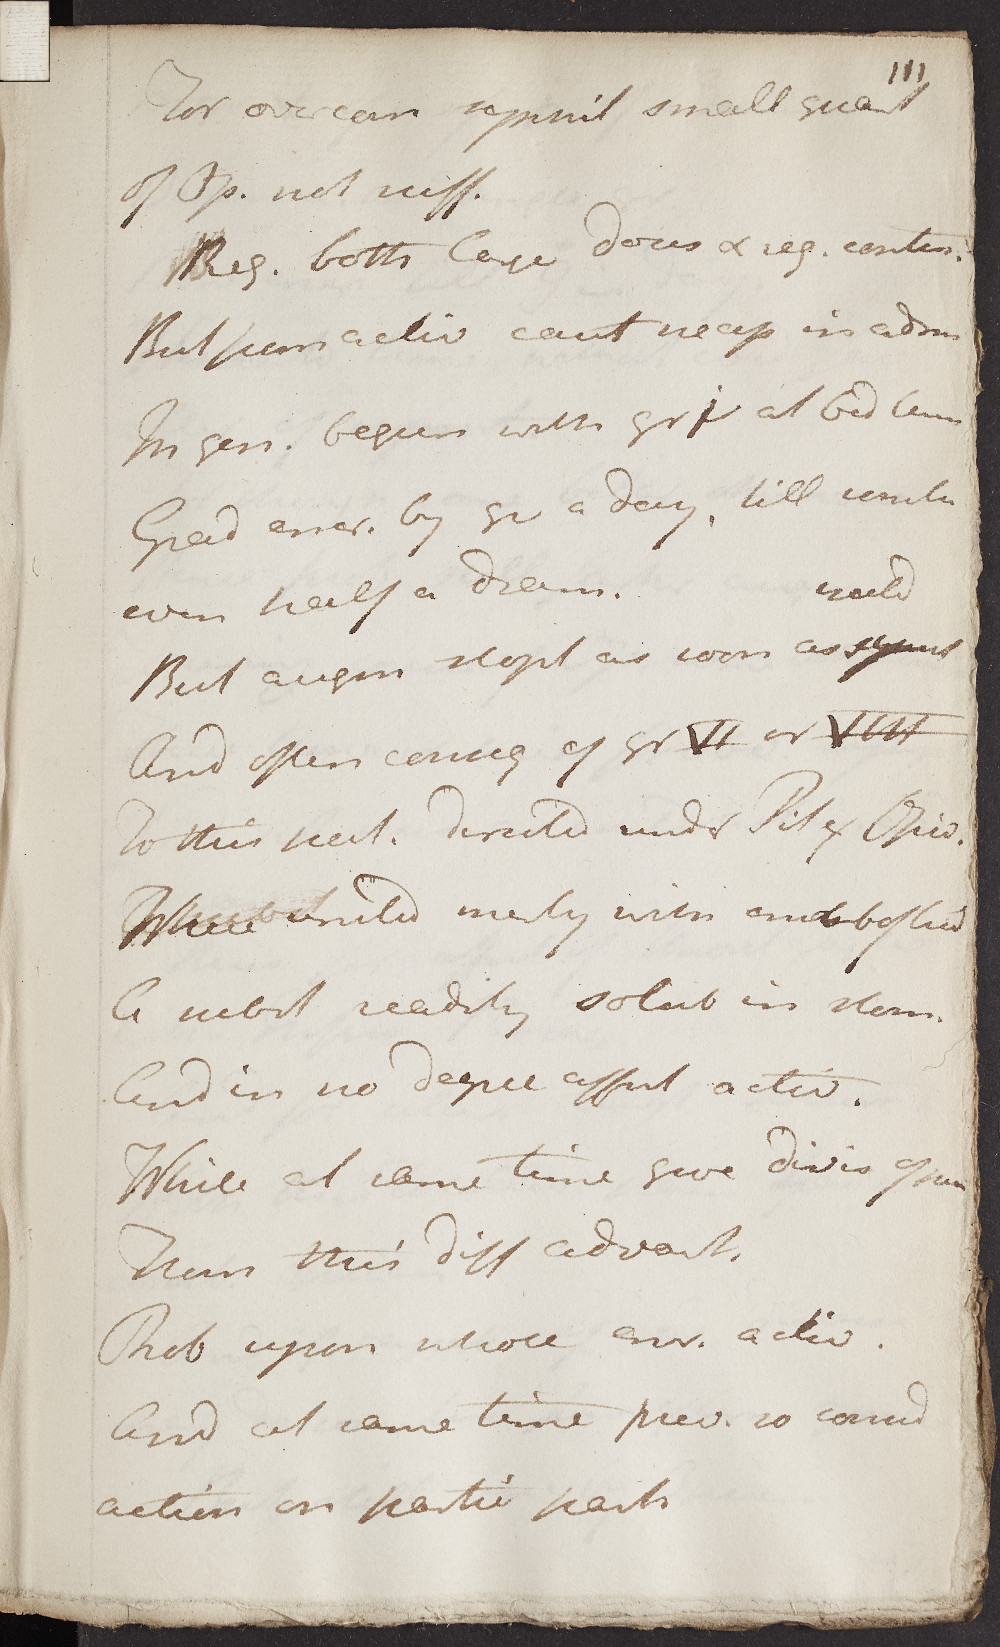 111
For overcom symuil small quant
of Op. not suff.
Req. both large doses & reg. contin.
But from activ caut necess in adm
In gen. begun with gr i at bed time
Grad encr. by gr a day, till
even half a dram.
But augm stopt as soon as symt
And often conseq of gr VI or VIII
To this part. directed under Pil ex Opio.
When united merly with
A subst readily solub in stom.
And in no degree affect activ.
While at same time give divis of
From this diff advant.
Prob upon whole encr. activ.
And at same time prev. so consid
action on partic parts